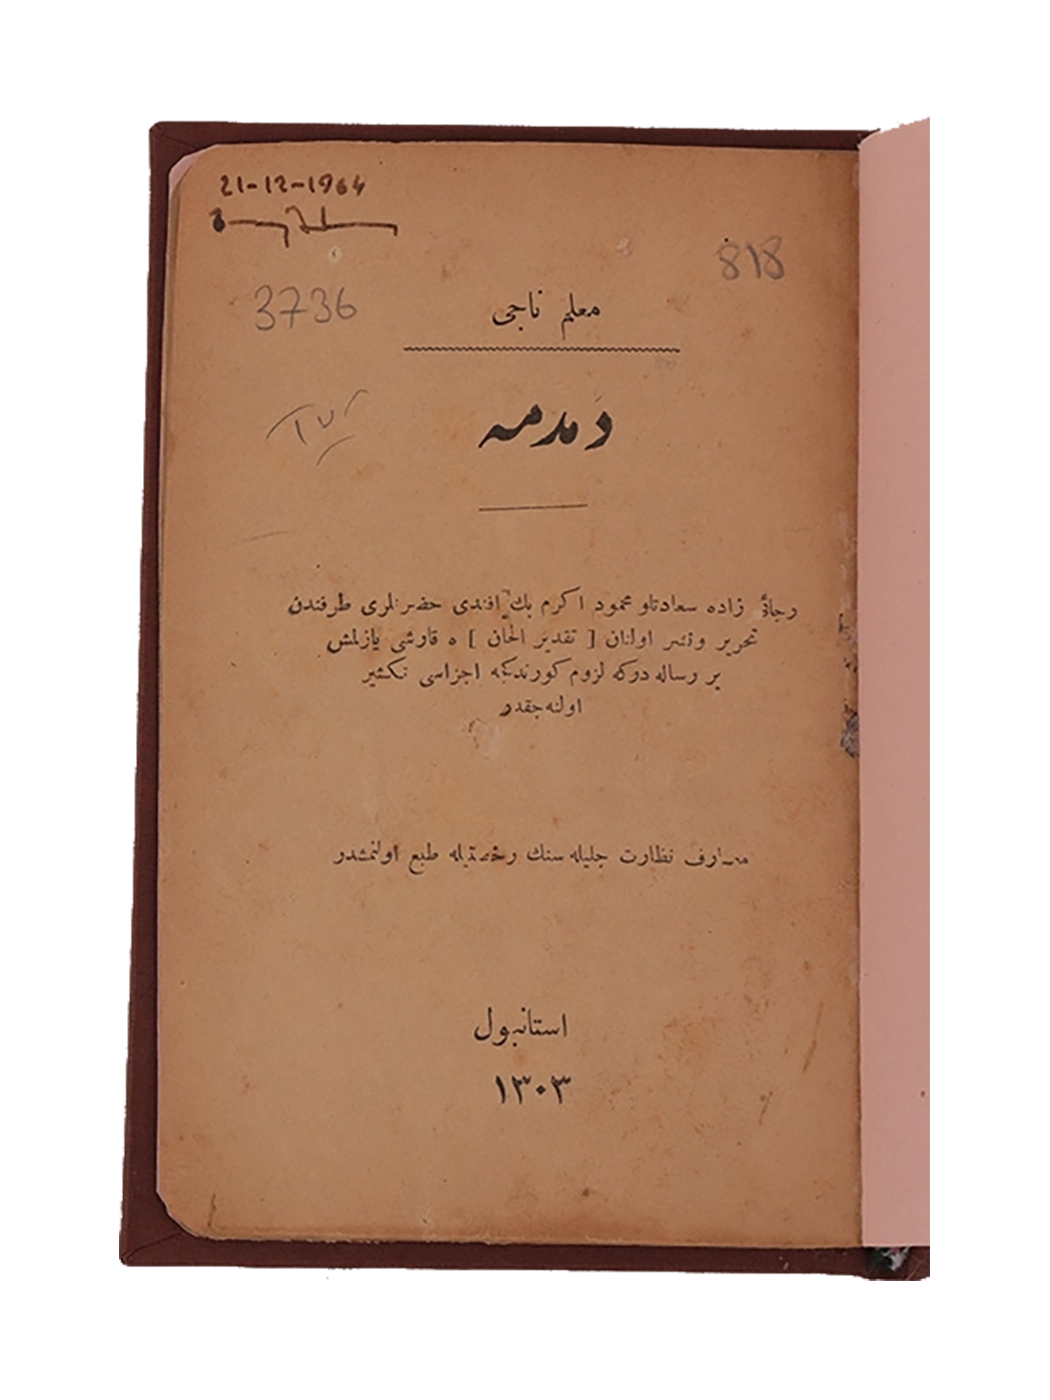 21-12-1964
818
3736
معلم ناجی
دمدمه
رجائی زاده سعادتلو محمود اکرم بك افندی حضرتلری طرفندن
تحریر ونشر اولنان [ تقدیر الحان ] ه قارشی یازلمش
بر رساله درکه لزوم کورندکجه اجزاسی تکثیر
اولنه جقدر
معارف نظارت جلیله سنك رخصتیله طبع اولنمشدر
استانبول
١٣٠٣